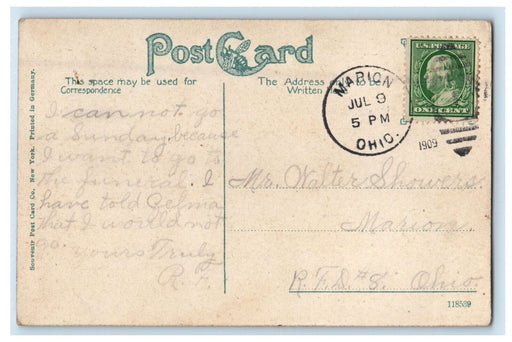 Post Card
This space may be used for
Correspondence
The Address only to be
Written
U.S. POSTAGE
ONE CENT
MARION
JUL 9
5 PM
OHIO.
1909
I can not go
a Sunday because
I want to go to
the funeral. I
have told Delma
that I would not
go.
yours Truly
R. F.
Mr. Walter Showers.
Marion
R.F.D. #8. Ohio.
Souvenir Post Card Co., New York. Printed in Germany.
118539